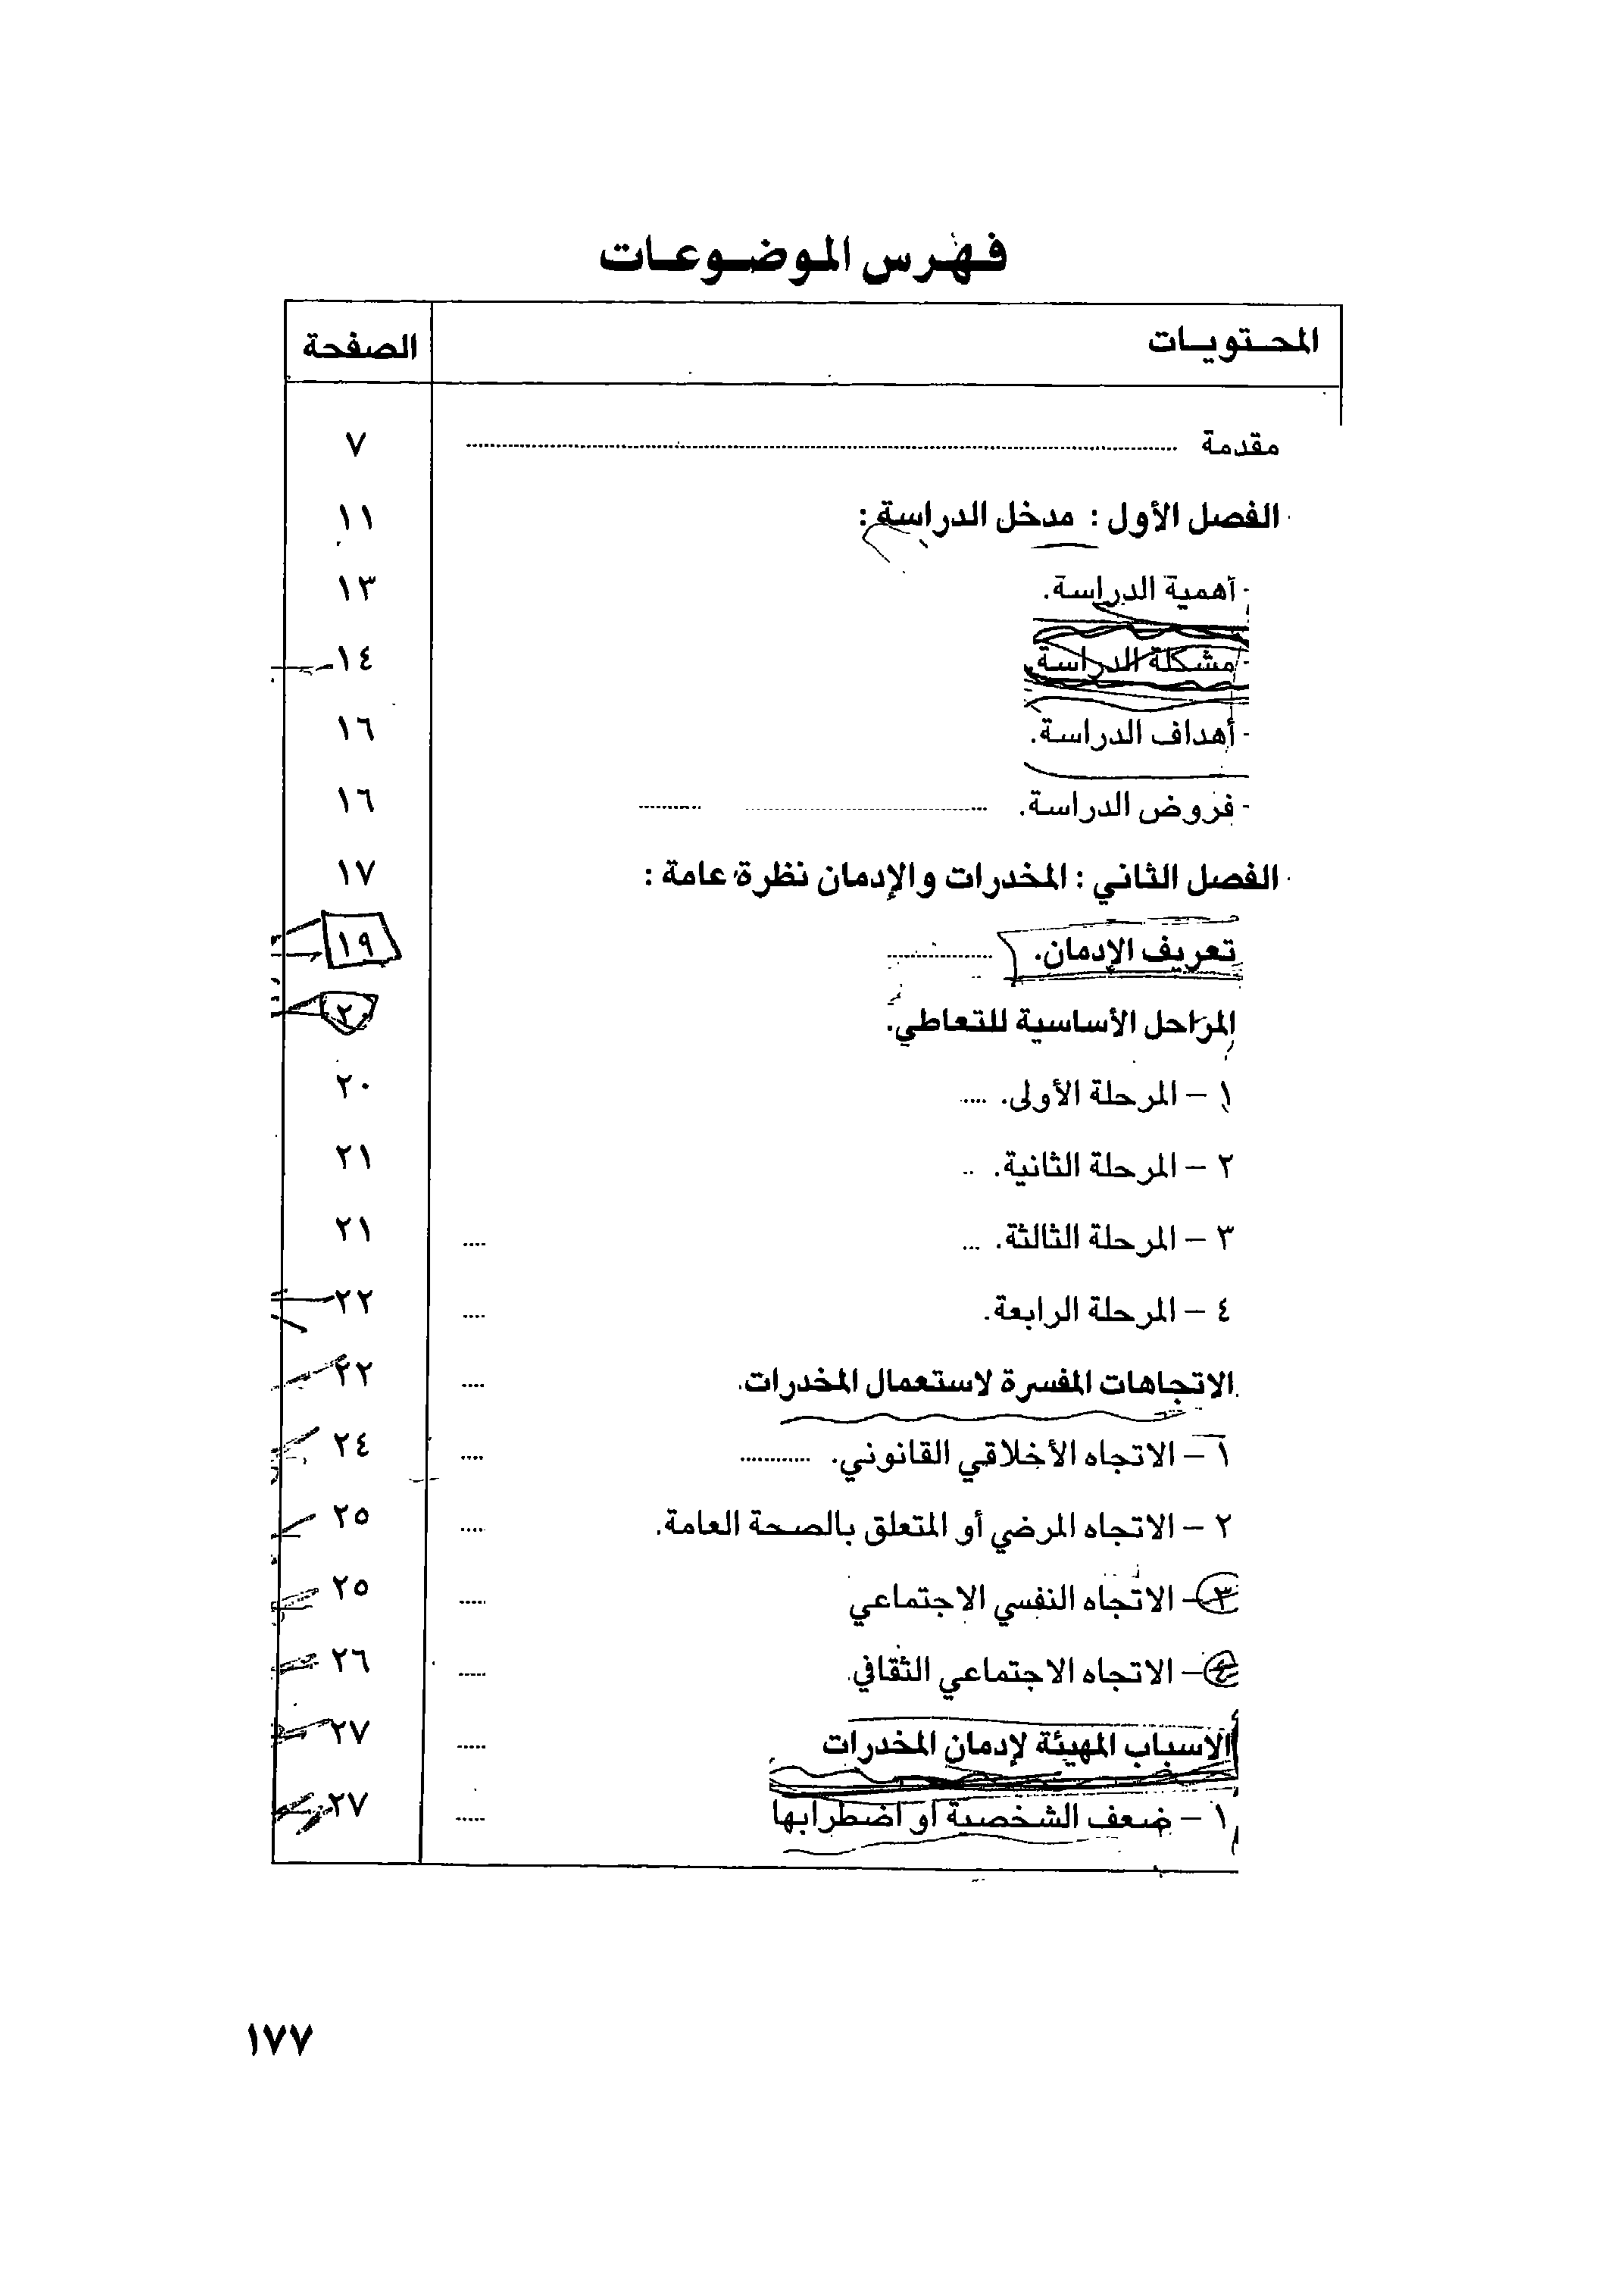 فهرس الموضوعات
المحتويات الصفحة
مقدمة ٧
الفصل الأول : مدخل الدراسة : ١١
- أهمية الدراسة. ١٣
- مشكلة الدراسة. ١٤
- أهداف الدراسة. ١٦
- فروض الدراسة. ١٦
الفصل الثاني : المخدرات والإدمان نظرة عامة : ١٧
تعريف الإدمان. ١٩
المراحل الأساسية للتعاطي. ٢٠
١ – المرحلة الأولى. ٢٠
٢ – المرحلة الثانية. ٢١
٣ – المرحلة الثالثة. ٢١
٤ – المرحلة الرابعة. ٢٢
الاتجاهات المفسرة لاستعمال المخدرات. ٢٢
١ – الاتجاه الأخلاقي القانوني. ٢٤
٢ – الاتجاه المرضي أو المتعلق بالصحة العامة. ٢٥
٣ – الاتجاه النفسي الاجتماعي ٢٥
٤ – الاتجاه الاجتماعي الثقافي ٢٦
الاسباب المهيئة لإدمان المخدرات ٢٧
١ – ضعف الشخصية أو اضطرابها ٢٧
١٧٧